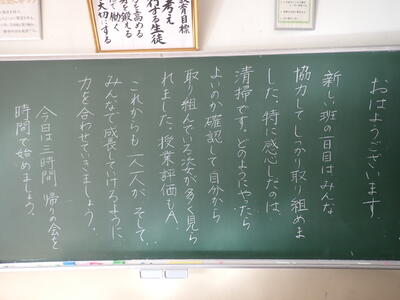 育目標
考え
行する生徒
を高める
を鍛える
て働く
大切にする
おはようございます
新しい班の一日目はみんな
協力してしっかり取り組めま
した。特に感心したのは、
清掃です。どのようにやったら
よいのか確認して自分から
取り組んでいる姿が多く見ら
れました。授業評価もA。
これからも一人一人が、そして
みんなで成長していけるように、
力を合わせていきましょう。
今日は三時間 帰りの会を
時間で始めましょう。